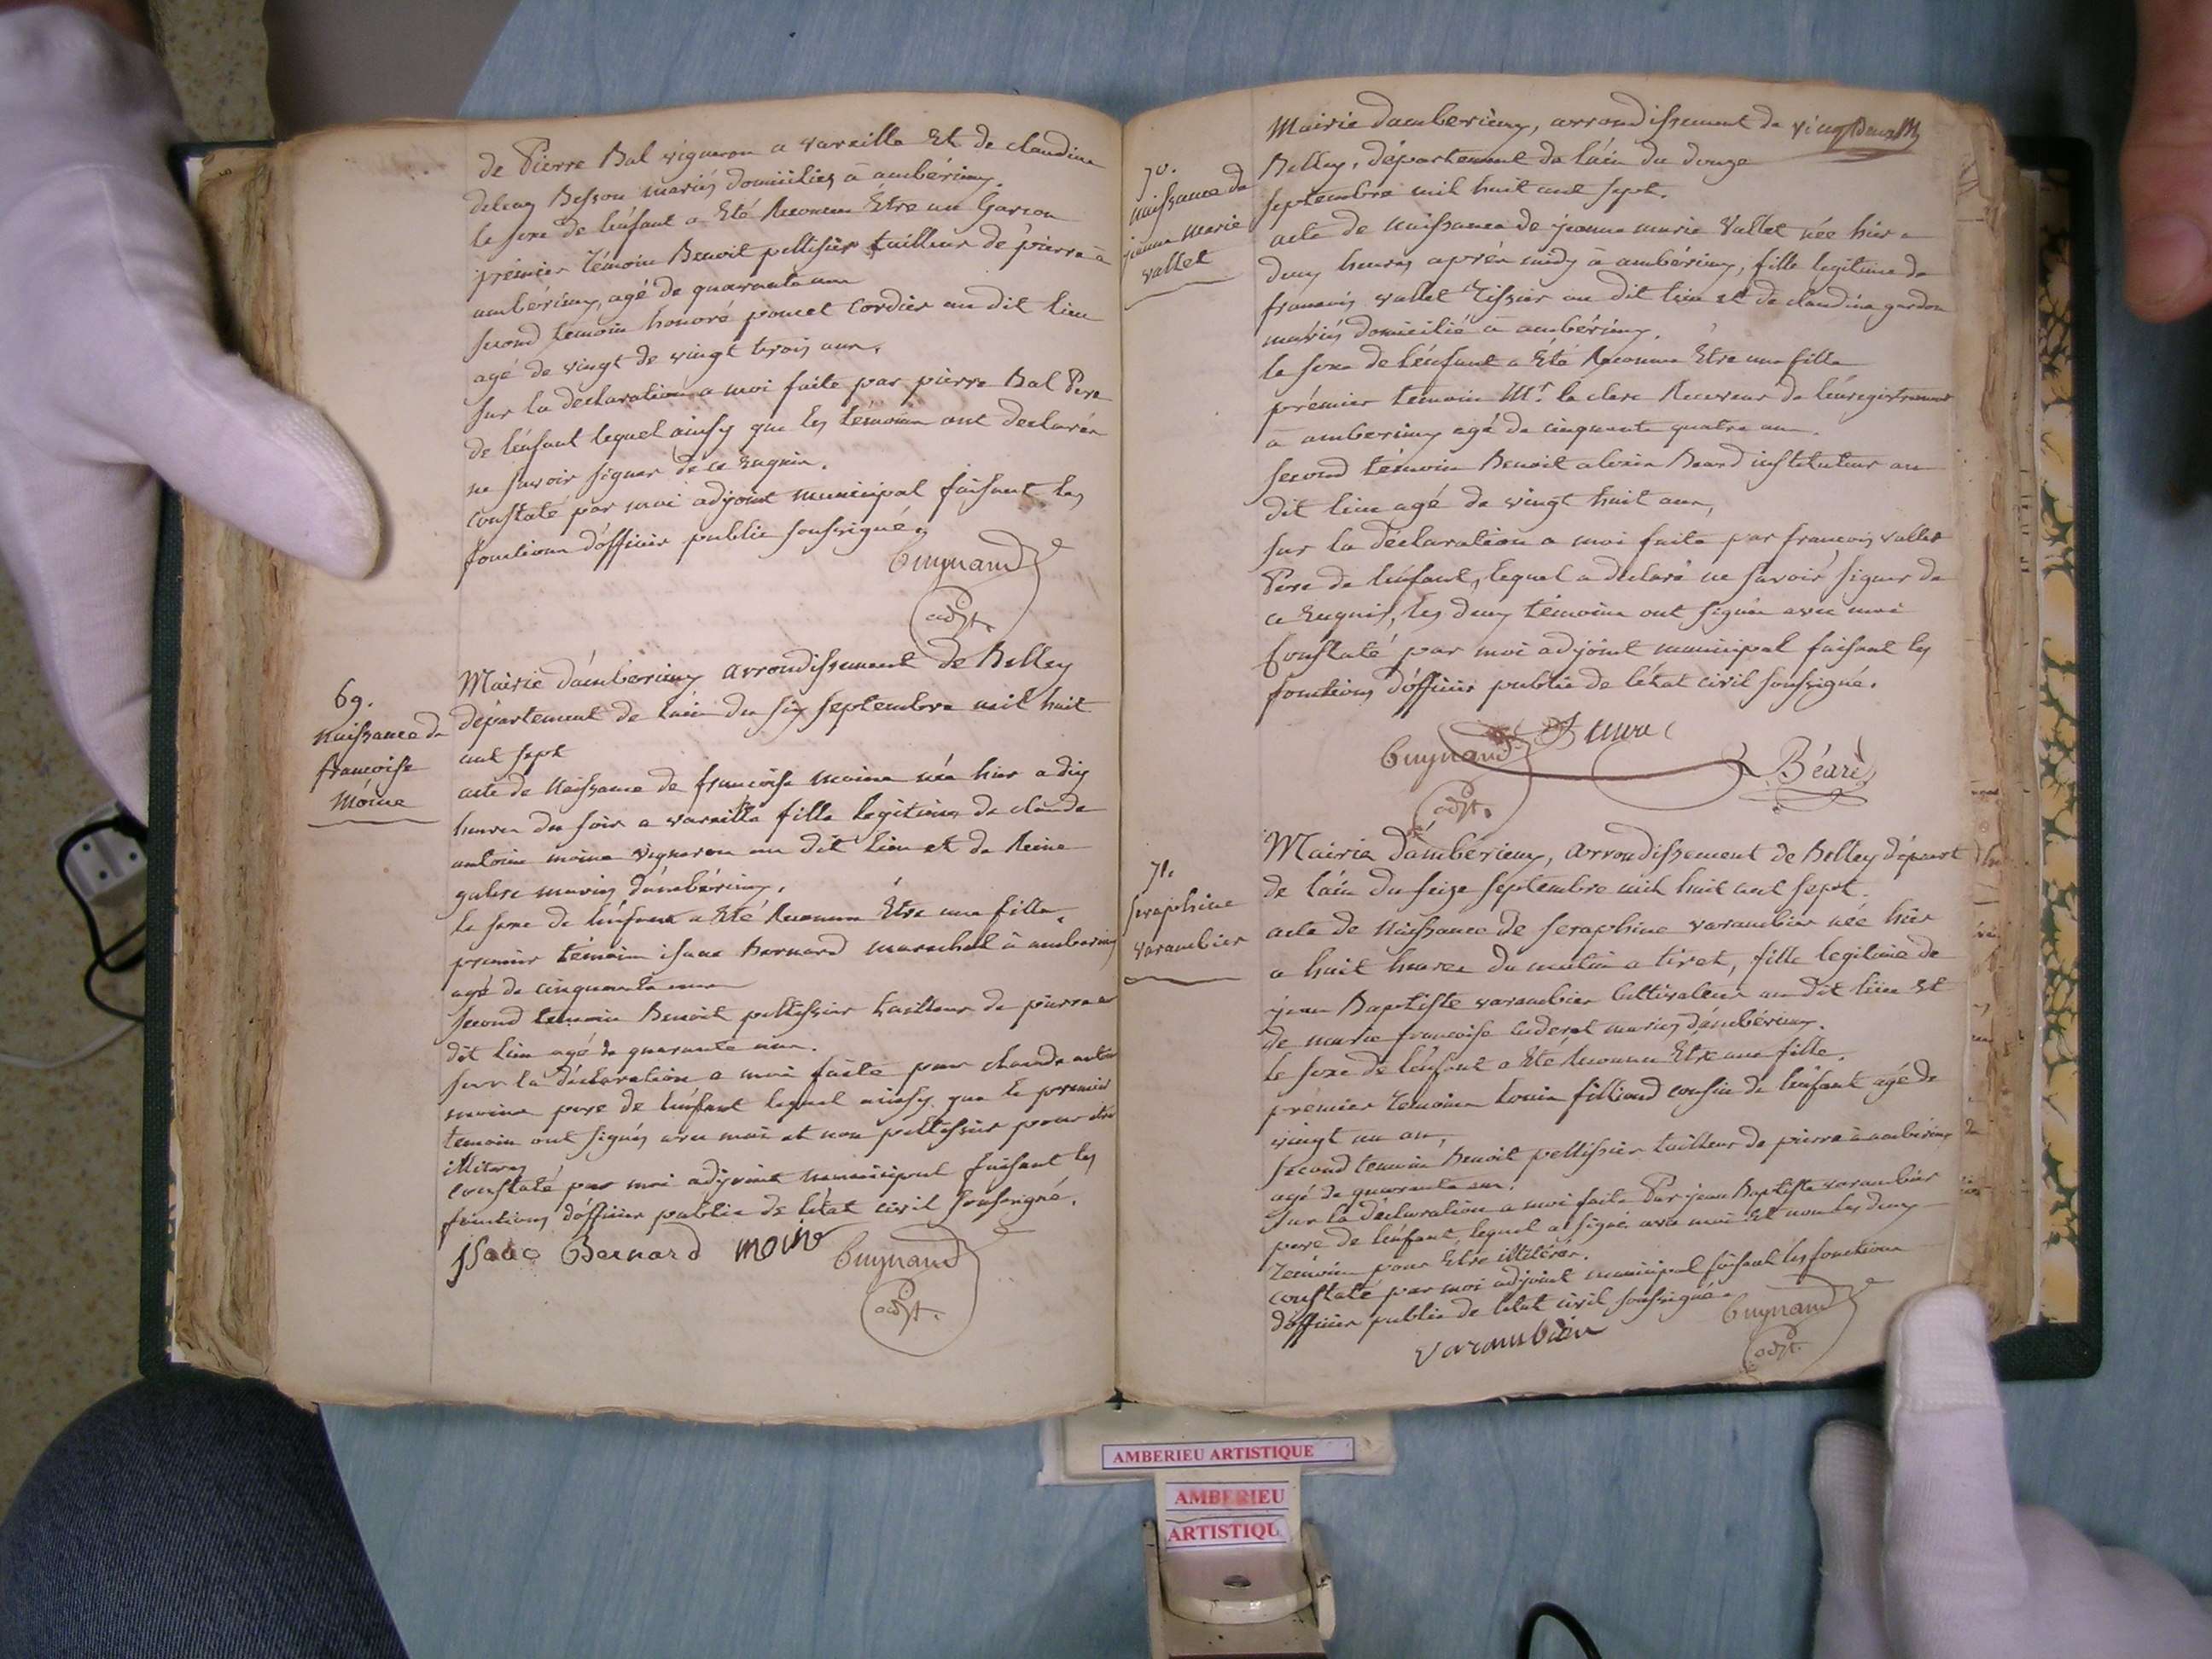 de Pierre Bal vigneron a vareille Et de claudine
Besson mariés domiciliés à ambérieux.
le sexe de l'énfant a Eté Reconnu Être un Garcon
prémier témoin Benoit pellissier tailleur de pierre à
ambérieux, agé de quarante ans
second temoin honoré poncet Cordier au dit lieu
agé de vingt de vingt trois ans.
sur la déclaration a moi faite par pierre Bal Pere
de l'énfant lequel ainsy que les témoins ont declarés
ne savoir signer de ce Enquis.
constaté par moi adjoint municipal faisant les
fonctions d'officier public soussigné.
Guynand
adjt.
69.
Naissance de
françoise
Moine
Mairie d'ambérieux arrondissement de Belley
département de l'ain du six septembre mil huit
cent sept
acte de Naissance de françoise moine née hier a dix
heures du soir a vareille fille legitime de claude
antoine moine vigneron au dit lieu et de Reine
mariés d'ambérieux.
le sexe de l'énfant a Eté Reconnu Être une fille.
premier témoin isaac Bernard marechal à amberieux
agé de cinquante ans
second temoin Benoit pellissier tailleur de pierre au
dit lieu agé de quarante ans.
sur la déclaration a moi faite par claude antoine
moine pere de l'énfant lequel ainsy que le premier
temoin ont signés avec moi et non pellissier pour etre
illiteres
constaté par moi adjoint municipal faisant les
fonctions d'officier public de l'état civil soussigné.
isaac Bernard moine Guynand
adjt.
vingt deux
70.
Naissance de
jeanne marie
vallet
Mairie d'amberieux, arrondissement de
Belley, département de l'ain du douze
septembre mil huit cent sept.
acte de Naissance de jeanne marie Vallet née hier a
deux heures aprés midy à ambérieux, fille legitime de
francois vallet Tissier au dit lieu et de claudine gardon
mariés domicilié à ambérieux.
le sexe de l'énfant a Eté Reconnu Etre une fille
prémier temoin Mr. le clerc Receveur de l'énregistrement
à amberieux agé de cinquante quatre ans.
second témoin Benoit Beard instituteur au
dit lieu agé de vingt huit ans,
sur la déclaration a moi faite par francois vallet
Pere de l'énfant, lequel a declaré ne savoir signer de
ce Enquis, les deux témoins ont signés avec moi
Constaté par moi adjoint municipal faisant les
fonctions d'officier public de l'état civil soussigné.
Guynand
Béard
adjt.
71.
seraphine
varambier
Mairie d'ambérieux, arrondissement de Belley départ
de l'ain du seize septembre mil huit cent sept.
acte de Naissance de seraphine varambier née hier
a huit heures du matin a tiret, fille legitime de
jean Baptiste varambier Cultivateur au dit lieu Et
de marie francoise mariés d'ambérieux.
le sexe de l'énfant a Eté Reconnu Etre une fille.
prémier temoin Louis filliond cousin de l'énfant agé de
vingt un an,
second temoin Benoit pellissier tailleur de pierre à amberieux
agé de quarante ans.
sur la déclaration a moi faite Par jean Baptiste varambier
pere de l'énfant, lequel a signé avec moi Et non les deux
témoins pour Etre illiterés.
constaté par moi adjoint municipal faisant les fonctions
d'officier public de l'état civil soussigné.
varambier
Guynand
adjt.
AMBERIEU ARTISTIQUE
AMBERIEU
ARTISTIQU